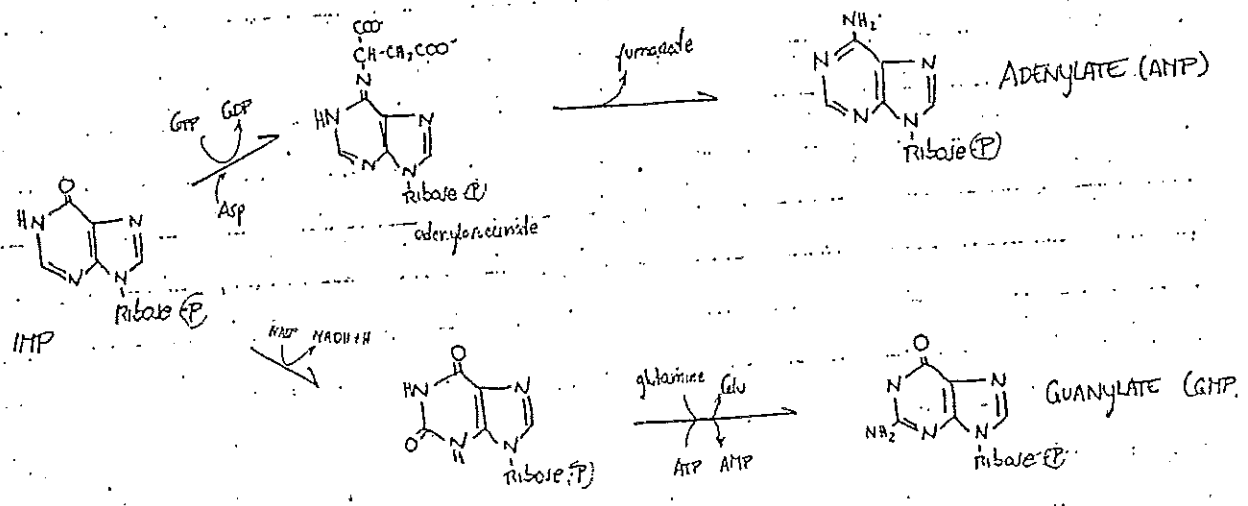 COO⁻
CH-CH₂COO⁻
N
HN
N
N
N
Ribose (P)
adenylosuccinate
GTP GDP
Asp
fumarate
NH₂
N
N
N
N
Ribose (P)
ADENYLATE (AMP)
O
HN
N
N
N
Ribose (P)
IMP
NAD⁺ NADH+H
O
HN
N
O
N
H
N
Ribose (P)
glutamine Glu
ATP AMP
O
N
N
NH₂
N
N
Ribose (P)
GUANYLATE (GMP.